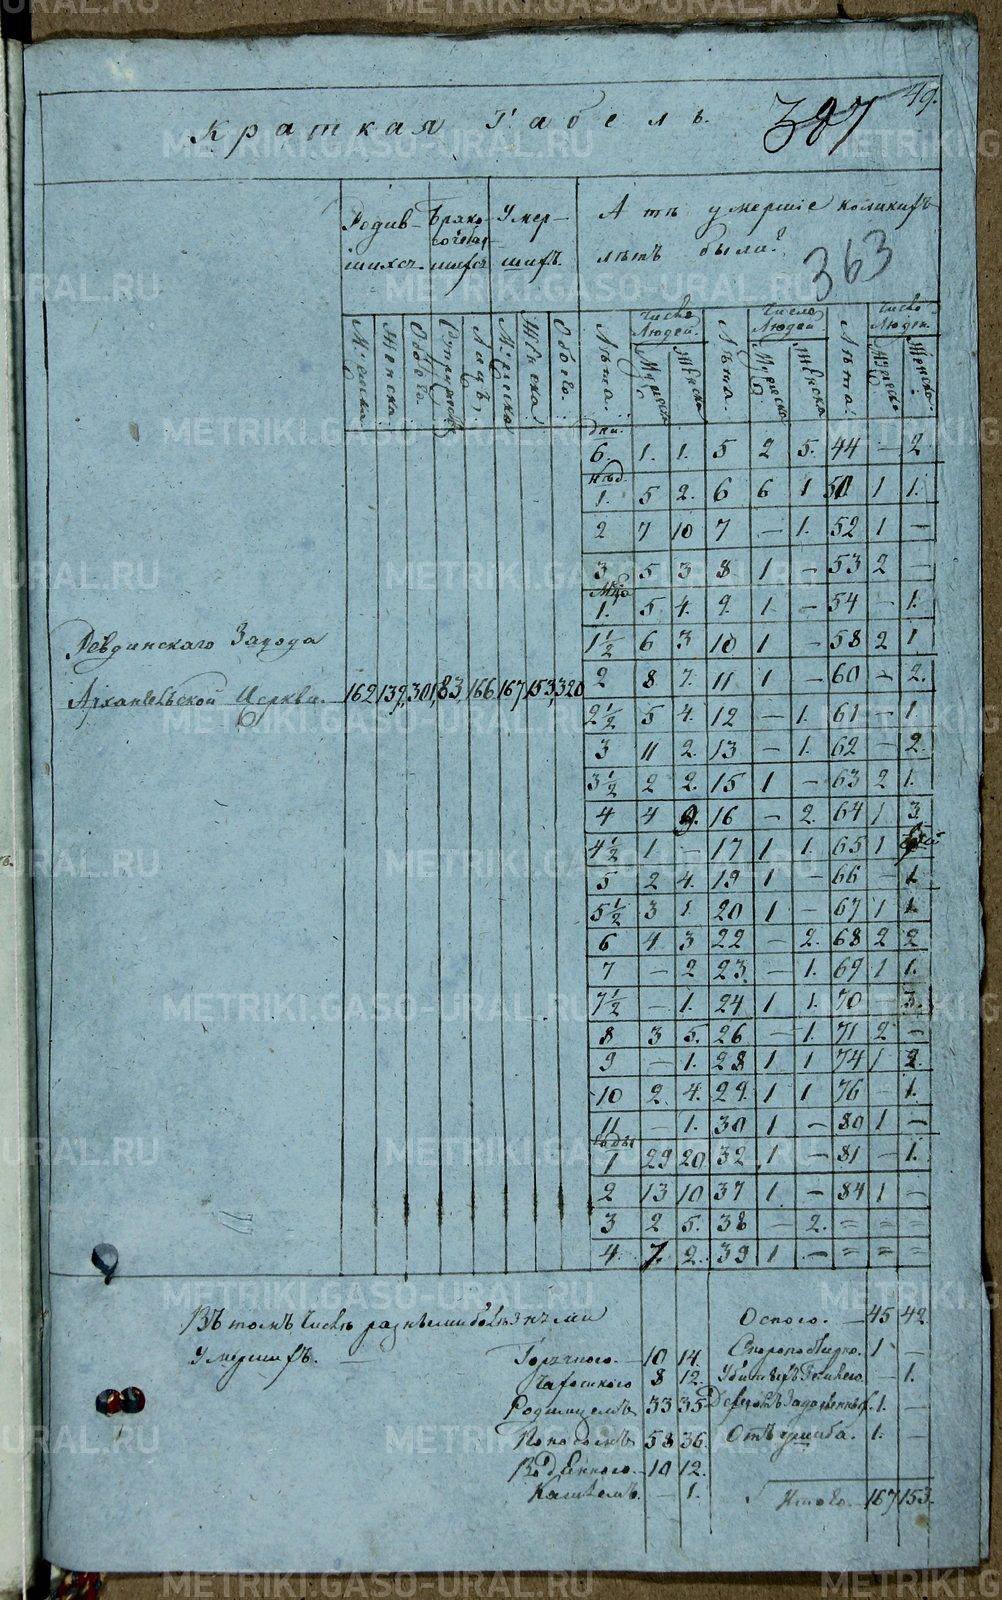 49.
Краткая Табель.
387
363
Родив- Брако- Умер- А тѣ умершіе коликихъ
сочетав-
шихся шихся шихъ. лѣтъ были?
Число Людей. Число Людей Число Людей.
Мужеска Женска. Обоего. Супружествъ Лицъ, Мужеска Женска. Обоего. Лѣта. Мужеска Женска Лѣта. Мужеска Женска Лѣта. Мужеска Женска.
дни.
6. 1. 1. 5 2 5. 44 — 2
нед.
1. 5 2. 6 6 1 50 1 1.
2 7 10 7 — 1. 52 1 —
3 5 3 8 1 — 53 2 —
Мцъ
1. 5 4. 9. 1 — 54 — 1.
Ревдинскаго Завода
1½ 6 3 10 1 — 58 2 1.
Архангельской Церкви. 162 139, 301, 83, 166, 167, 153, 320
2 8 7. 11 1 — 60 — 2.
2½ 5 4. 12 — 1. 61 — 1.
3 11 2. 13 — 1. 62 — 2.
3½ 2 2. 15 1 — 63 2 1.
4 4 9. 16 — 2. 64 1 3.
4½ 1 — 17 1 1. 65 1
5 2 4. 19 1 — 66 — 1.
5½ 3 1. 20 1 — 67 1 1.
6 4 3 22 — 2. 68 2 2
7 — 2 23 — 1. 69 1 1.
7½ — 1. 24 1 1. 70 3.
8 3 5. 26 — 1. 71 2 —
9 — 1. 28 1 1 74 1 2.
10 2. 4. 29. 1 1 76 — 1.
11 — 1. 30 1 — 80 1 —
годы
1 29 20 32 1 — 81 — 1.
2 13 10 37 1. — 84 1 —
3 2 5. 38 — 2. = = =
4. 7. 2. 39 1 — = = =
Въ томъ числѣ разными болѣзньми Оспою. — 45 42.
Умершихъ. — Горячкою. — 10 14. Скоропостижно. 1 —
Чахоткою 8 12. — 1.
Родимцемъ 33 35 1. —
Поносомъ 58 36. Отъ 1. —
10 12.
Кашлемъ. — 1. Итого. — 167 153.
METRIKI.GASO-URAL.RU